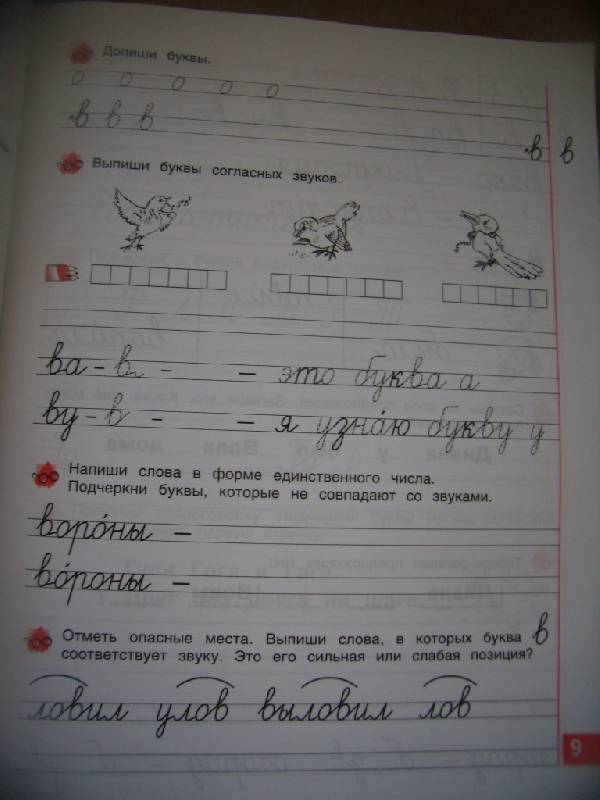 Допиши буквы.
о о о о о
в в в
в в
Выпиши буквы согласных звуков.
ва – в – – это буква а
ву – в – – я узна́ю букву у
Напиши слова в форме единственного числа.
Подчеркни буквы, которые не совпадают со звуками.
воро́ны –
во́роны –
Отметь опасные места. Выпиши слова, в которых буква в
соответствует звуку. Это его сильная или слабая позиция?
ловил улов выловил лов
9